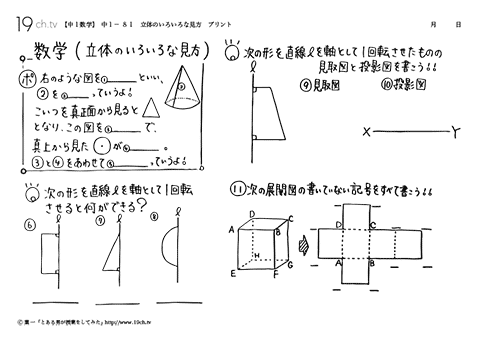 19ch.tv 【中1数学】 中1-81 立体のいろいろな見方 プリント 月 日
数学(立体のいろいろな見方)
ポ 右のような図を① といい、
②を② っていうよ!
こいつを真正面から見ると△
となり、この図を③ で、
真上から見た が④ 。
③と④をあわせて⑤ っていうよ!
次の形を直線ℓを軸として1回転
させると何ができる?
⑥ ℓ ⑦ ℓ ⑧ ℓ
次の形を直線ℓを軸として1回転させたものの
見取図と投影図を書こう!!
ℓ ⑨見取図 ⑩投影図
X Y
⑪次の展開図の書いていない記号をすべて書こう!!
D C
A B
H
E F G
D C
A B
© 葉一「とある男が授業をしてみた」http://www.19ch.tv